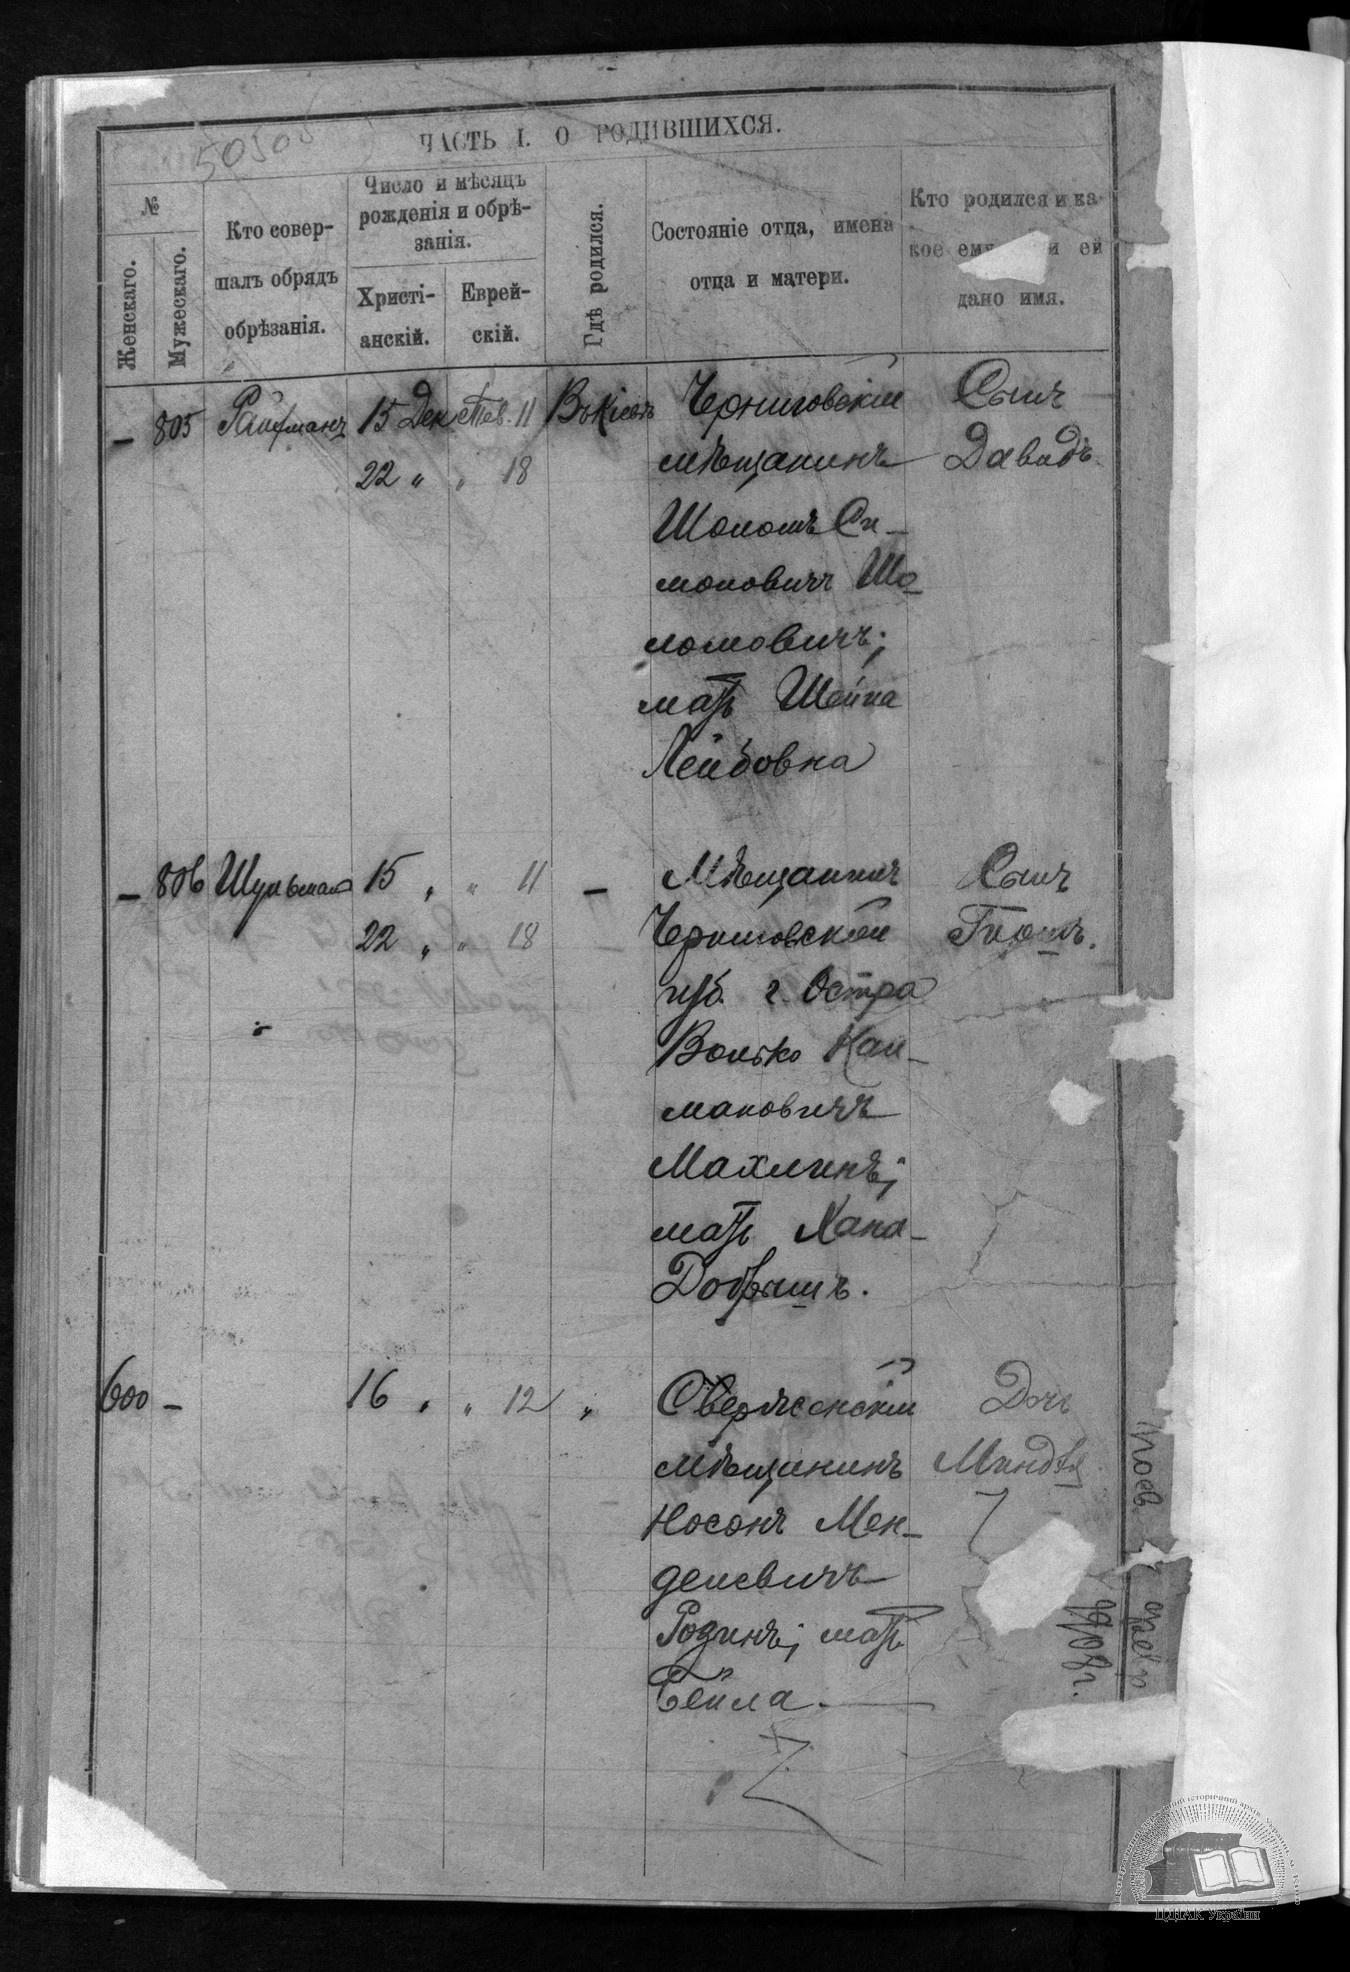 50505
ЧАСТЬ I. О РОДИВШИХСЯ.
№
Женскаго.
Мужескаго.
Кто совер-
шалъ обрядъ
обрѣзанія.
Число и мѣсяцъ
рожденія и обрѣ-
занія.
Христі-
анскій.
Еврей-
скій.
Гдѣ родился.
Состояніе отца, имена
отца и матери.
Кто родился и ка-
кое ему и ей
дано имя.
— 805 Райхманъ 15 Дек Тев. 11 Въ Кіевѣ Черниговскій Сынъ
22 „ „ 18 мѣщанинъ Давидъ.
Шоломъ Си-
моновичъ Шо-
ломовичъ;
мать Шейна
Лейбовна
— 806 Шульман 15 „ „ 11 — Мѣщанинъ Сынъ
22 „ „ 18 Черниговской
губ. г. Остра
Волько Най-
мановичъ
Махлинъ;
мать Хана-
Добрышъ.
600 — 16 „ „ 12 „ Дочь
мѣщанинъ
Носонъ Мен-
делевичъ
Родинъ; мать
Бейла.
1908 г.
ЦДІАК України